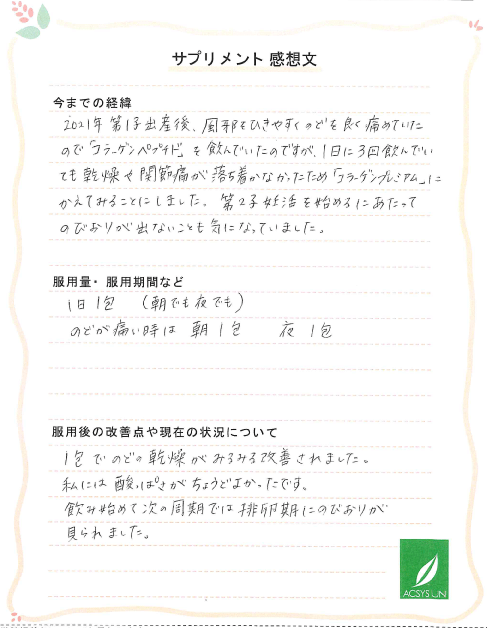 サプリメント 感想文
今までの経緯
2021年 第1子出産後、風邪をひきやすくのどを良く痛めていた
ので「コラーゲンペプタイド」を飲んでいたのですが、1日に3回飲んでい
ても乾燥や関節痛が落ち着かなかったため「コラーゲンプレミアム」に
かえてみることにしました。第2子妊活を始めるにあたって
のびおりが出ないことも気になっていました。
服用量・服用期間など
1日 1包 (朝でも夜でも)
のどが痛い時は 朝 1包 夜 1包
服用後の改善点や現在の状況について
1包でのどの乾燥がみるみる改善されました。
私には酸っぱさがちょうどよかったです。
飲み始めて次の周期では排卵期にのびおりが
見られました。
ACSYS UN